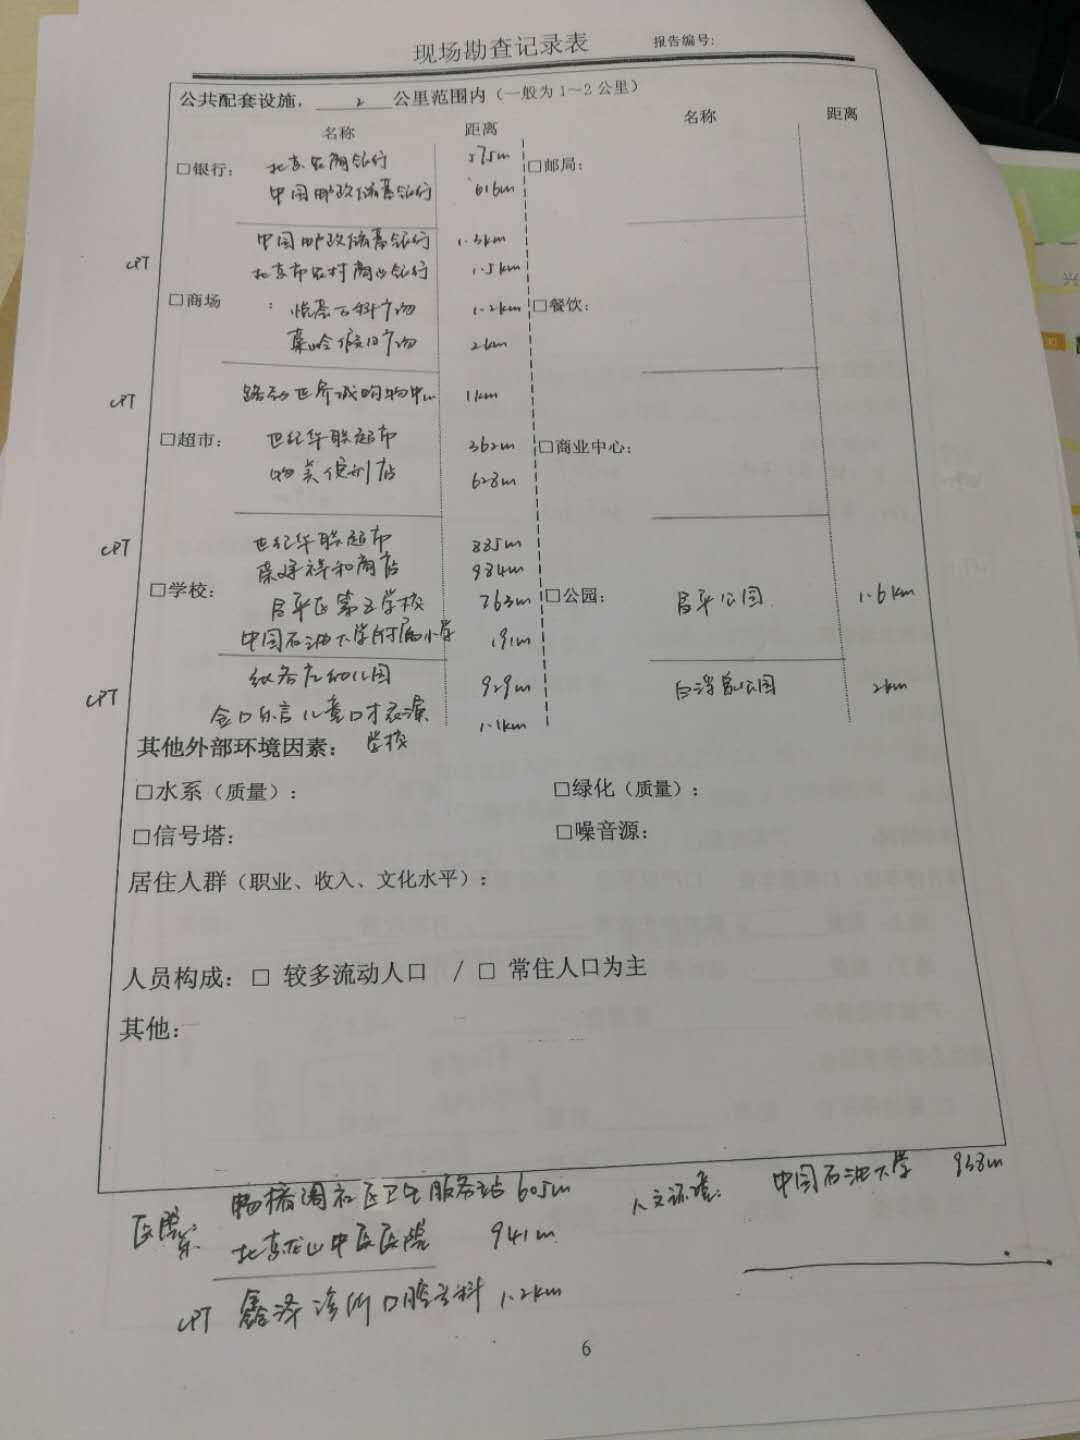 现场勘查记录表 报告编号:
公共配套设施, 2 公里范围内（一般为1~2公里）
名称 距离 名称 距离
□银行: 北京农商银行 575m □邮局:
中国邮政储蓄银行 616m
中国邮政储蓄银行 1.3km
CPT 北京市农村商业银行 1.5km
□商场 : 悦荟百科广场 1.2km □餐饮:
菓岭假日广场 2km
CPT 路劲世界城购物中心 1km
□超市: 世纪华联超市 362m □商业中心:
物美便利店 628m
CPT 世纪华联超市 885m
祥和商店 984m
□学校: 昌平区第五学校 763m □公园: 昌平公园 1.6km
中国石油大学附属小学 191m
CPT 幼儿园 929m 白浮泉公园 2km
金口乐言儿童口才表演 1.1km
其他外部环境因素: 学校
□水系（质量）: □绿化（质量）:
□信号塔: □噪音源:
居住人群（职业、收入、文化水平）:
人员构成: □ 较多流动人口 / □ 常住人口为主
其他:
医院: 社区卫生服务站 605m 人文环境: 中国石油大学 938m
北京龙山中医医院 941m
CPT 鑫泽诊所口腔专科 1.2km
6